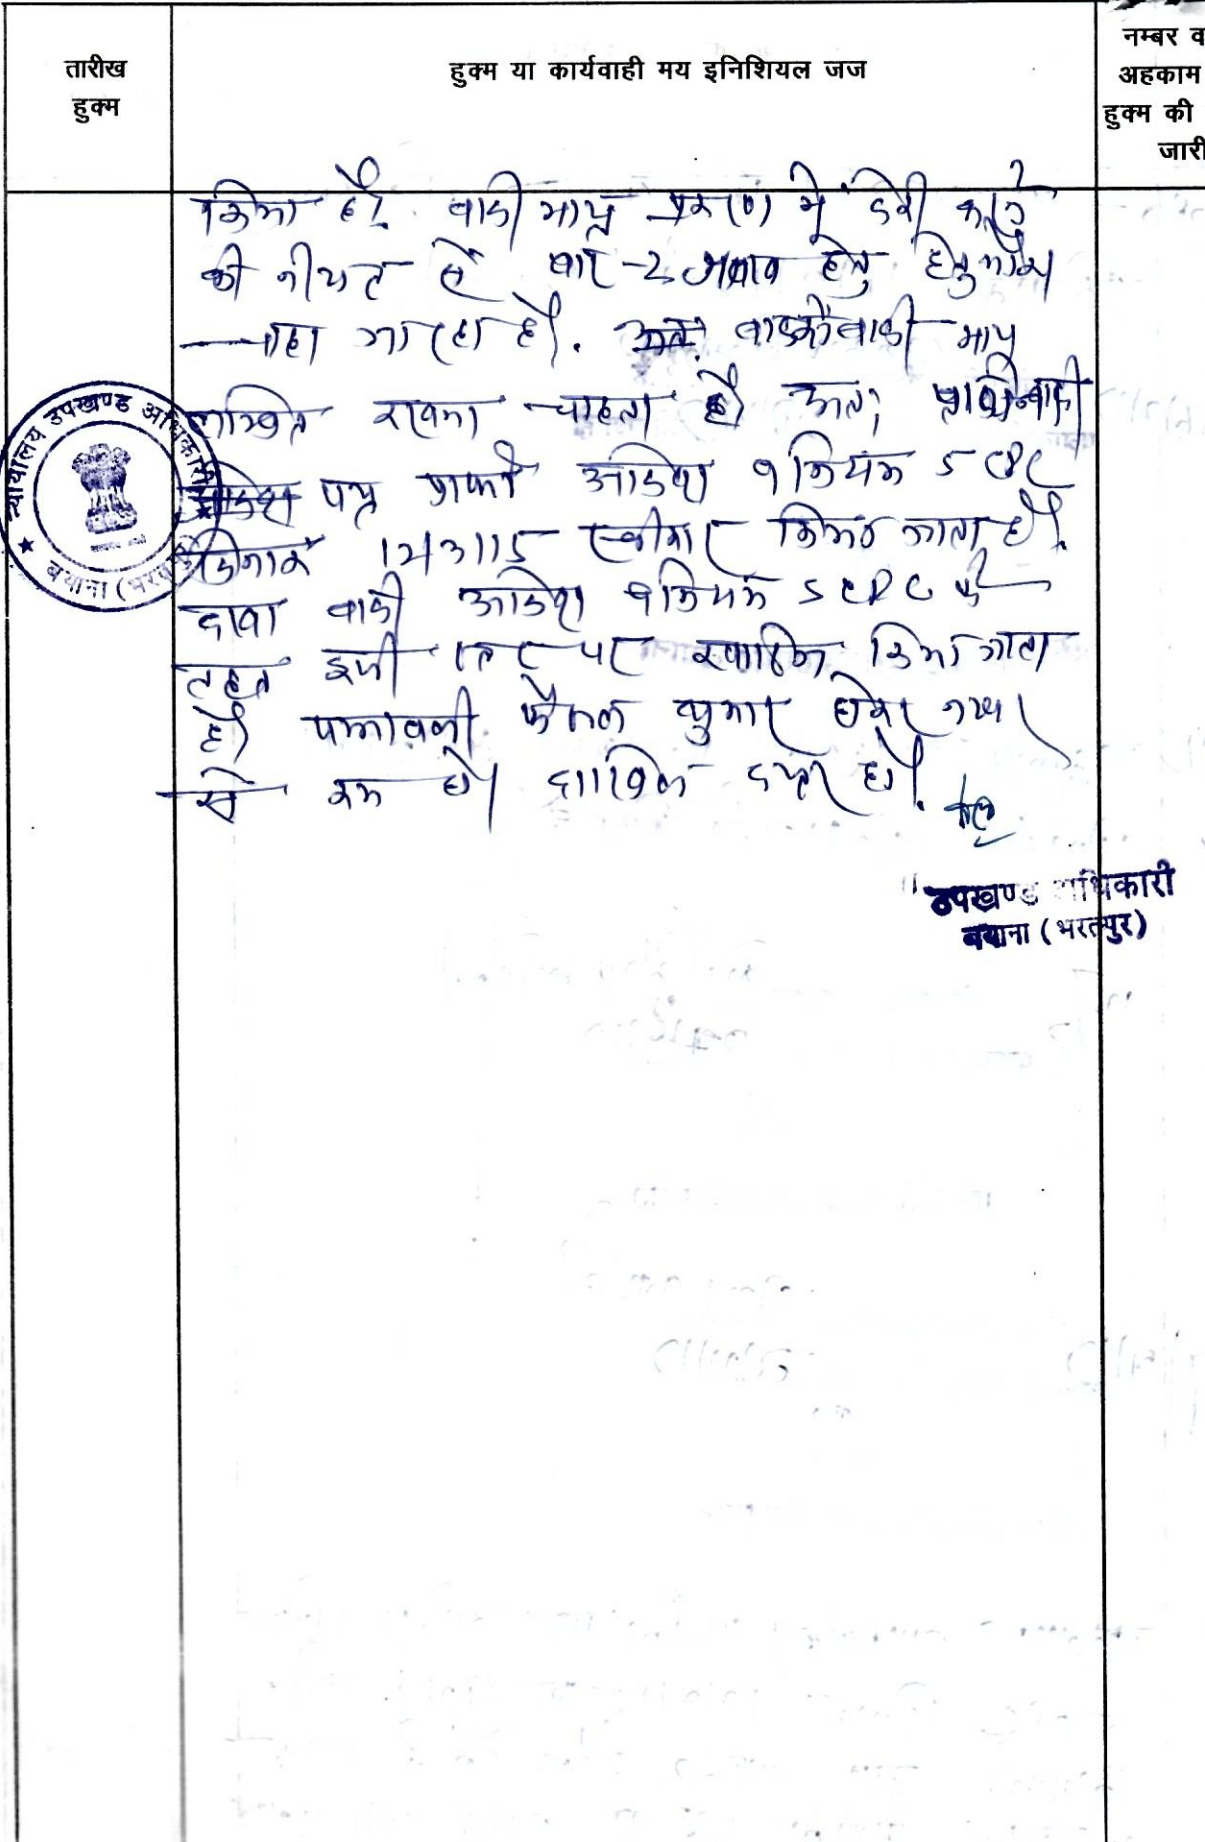 तारीख
हुक्म
हुक्म या कार्यवाही मय इनिशियल जज
नम्बर व
अहकाम
हुक्म की
जारी
किया है। वादी मात्र प्रकरण में देरी करने
की नीयत से बार-2 जबाव हेतु
चाहा जा रहा है। अतः वादी मात्र
लम्बित रखना चाहता है अतः प्रतिवादी
पत्र आदेश 9 नियम 5 CPC
दिनांक स्वीकार किया जाता है।
दावा वादी आदेश 9 नियम 5 CPC के
तहत इसी पर खारिज किया जाता
है। पत्रावली फैसल शुमार होकर नम्बर
से कम हो। दाखिल दफ्तर हो।
न्यायालय उपखण्ड अधिकारी
बयाना (भरतपुर)
उपखण्ड अधिकारी
बयाना (भरतपुर)